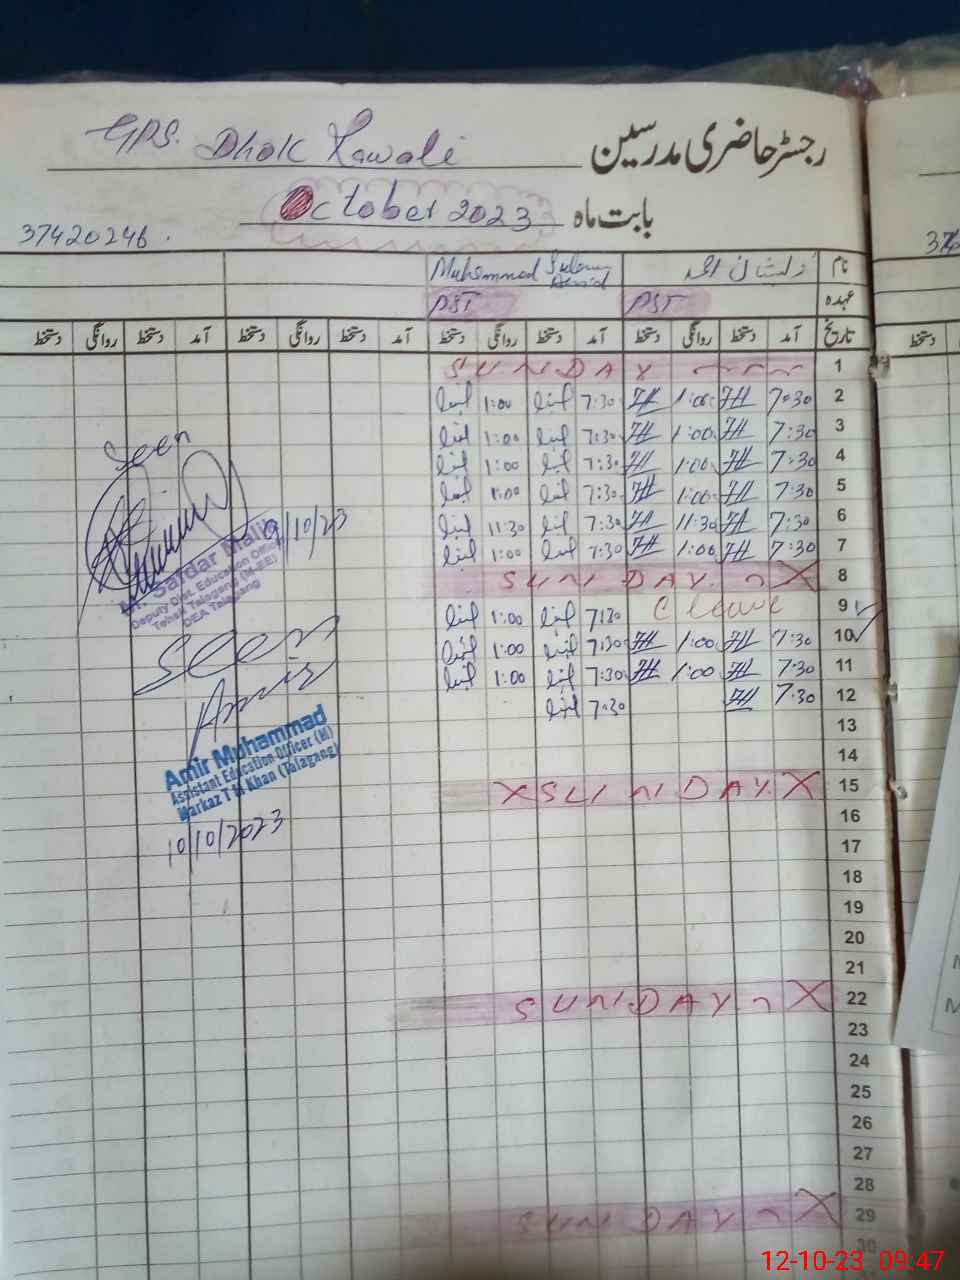 GPS. Dhok
رجسٹر حاضری مدرسین
October 2023 بابت ماہ
37420246.
نام Muhammad
عہدہ PST PST
تاریخ آمد دستخط روانگی دستخط آمد دستخط روانگی دستخط آمد دستخط روانگی دستخط آمد دستخط روانگی دستخط
1 SUNDAY
2 7:30 1:00 7:30 1:00
3 7:30 1:00 7:30 1:00
4 7:30 1:00 7:30 1:00
5 7:30 1:00 7:30 1:00
6 7:30 11:30 7:30 11:30
7 7:30 1:00 7:30 1:00
8 SUNDAY X
9 C leave 7:30 1:00
10 7:30 1:00 7:30 1:00
11 7:30 1:00 7:30 1:00
12 7:30 7:30
13
14
15 X SUNDAY X
16
17
18
19
20
21
22 SUNDAY X
23
24
25
26
27
28
29 SUNDAY X
30
Seen
9/10/23
Sardar Malik
Deputy Dist. Education Officer
Tehsil Talagang (M-EE)
DEA Talagang
Seen
Amir
Amir Muhammad
Assistant Education Officer (M)
Markaz T M Khan (Talagang)
10/10/2023
12-10-23 09:47